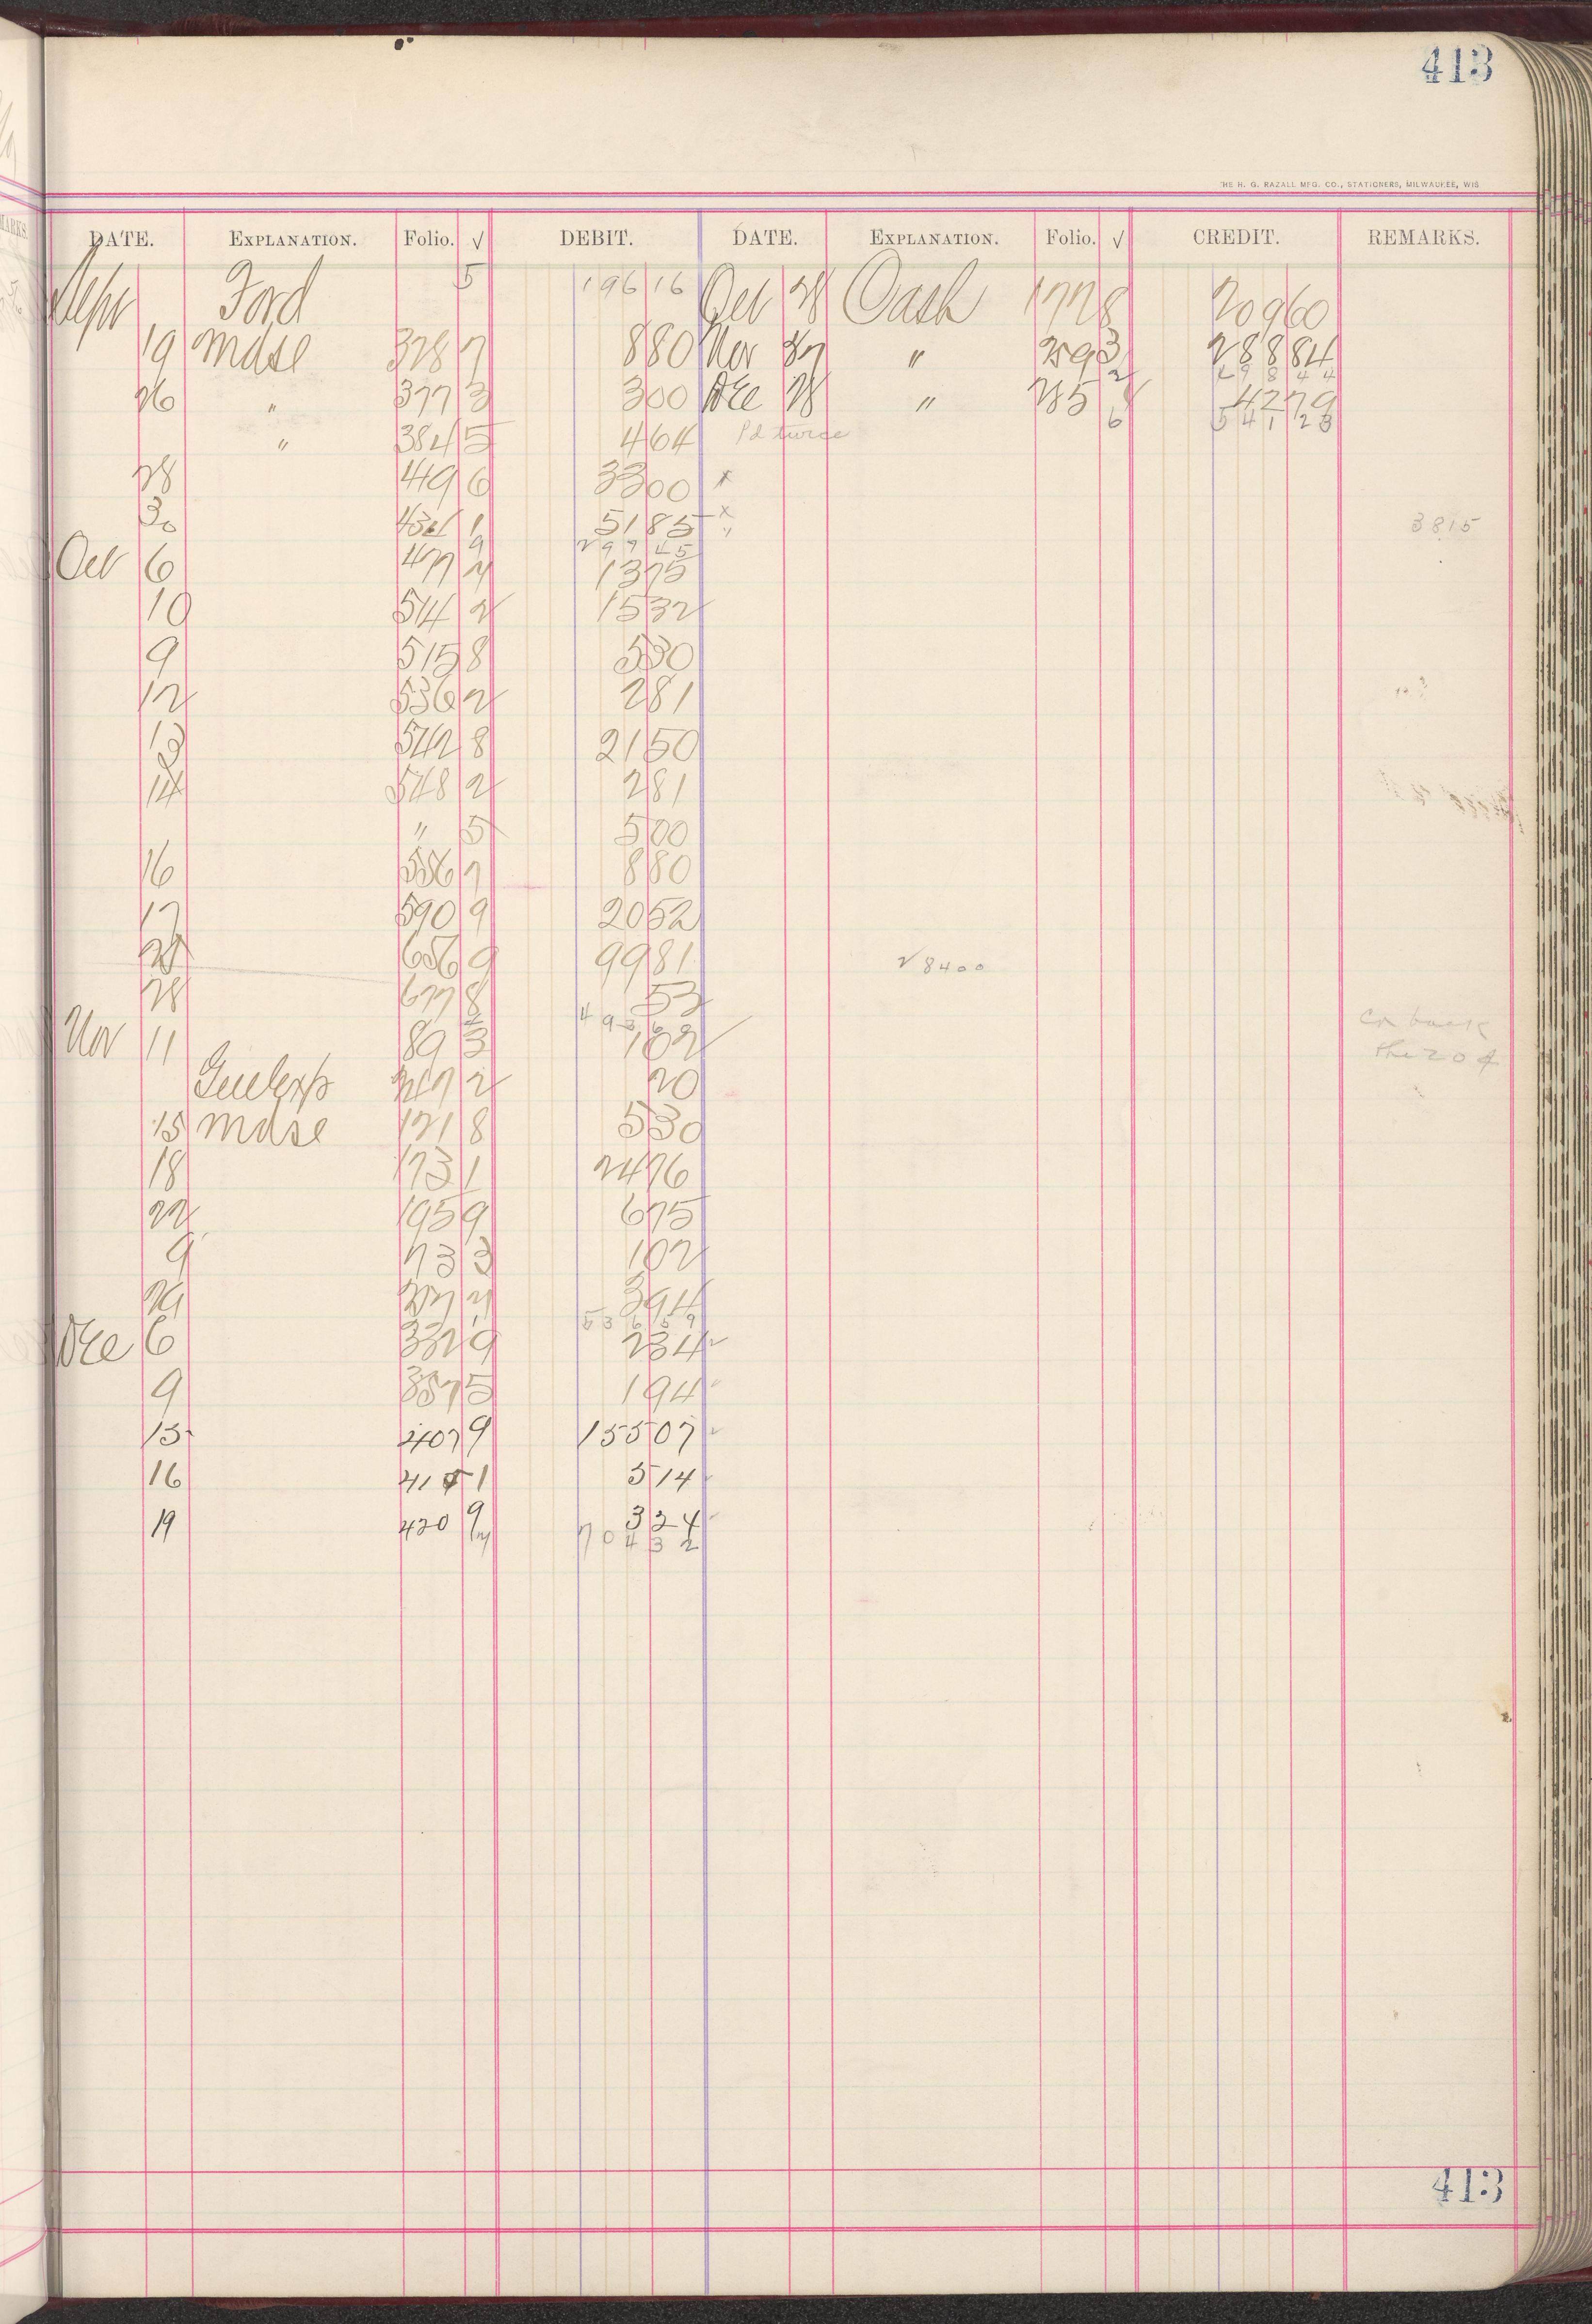 413
THE H. G. RAZALL MFG. CO., STATIONERS, MILWAUKEE, WIS
DATE. EXPLANATION. Folio. √ DEBIT. DATE. EXPLANATION. Folio. √ CREDIT. REMARKS.
Sept Ford 5 196 16 Oct 28 Cash 172 8 209 60
19 Mdse 328 7 8 80 Nov 27 " 259 3 288 84
2 498 44
26 " 377 3 3 00 Dec 28 " 235 42 79
6 541 23
" 384 5 4 64 Pd twice
28 419 6 33 00 x
30 434 1 51 85 x
9 297 45 "
3815
Oct 6 477 2 13 75
10 514 2 15 32
9 515 8 5 30
12 536 2 2 81
13 542 8 21 50
14 548 2 2 81
" 5 5 00
16 556 7 8 80
17 590 9 20 52
656 9 99 81 √ 8400
28 677 8 53
2 493 60
Nov 11 89 3 1 02
20 Mdse
15 Mdse 121 8 5 30
18 173 1 24 76
22 195 9 6 75
9 73 3 1 02
29 3 94
536 59
Dec 6 332 9 2 34
9 357 5 1 94
13 407 9 155 07
16 415 1 5 14
19 420 9 3 24
704 32
413